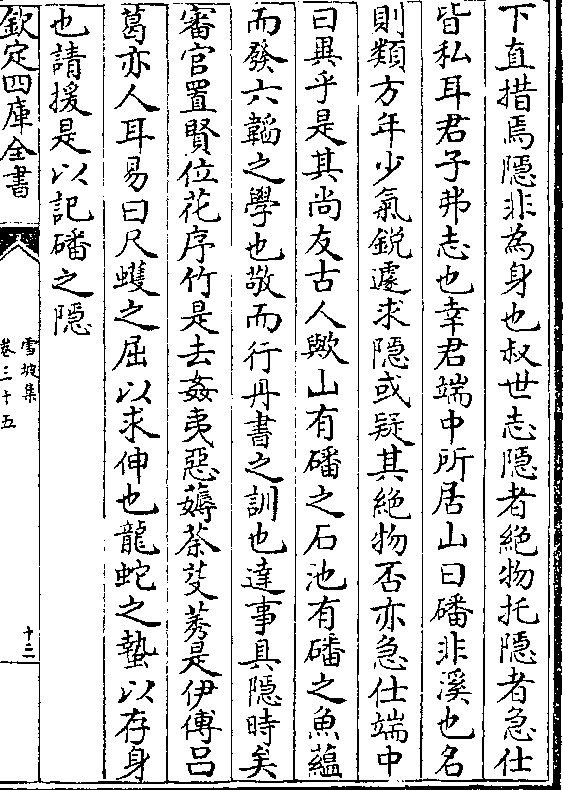 下直措焉隱非為身也叔世志隱者絶物托隱者急仕
皆私耳君子弗志也幸君端中所居山曰磻非溪也名
則類方年少氣鋭遽求隱或疑其絶物否亦急仕端中
曰異乎是其尚友古人歟山有磻之石池有磻之魚蘊
而發六韜之學也敬而行丹書之訓也達事具隱時矣
審官置賢位花序竹是去姦夷惡薅荼芟莠是伊傅吕
葛亦人耳易曰尺蠖之屈以求伸也龍蛇之蟄以存身
也請援是以記磻之隱
欽定四庫全書
雪坡集
卷三十五
十三